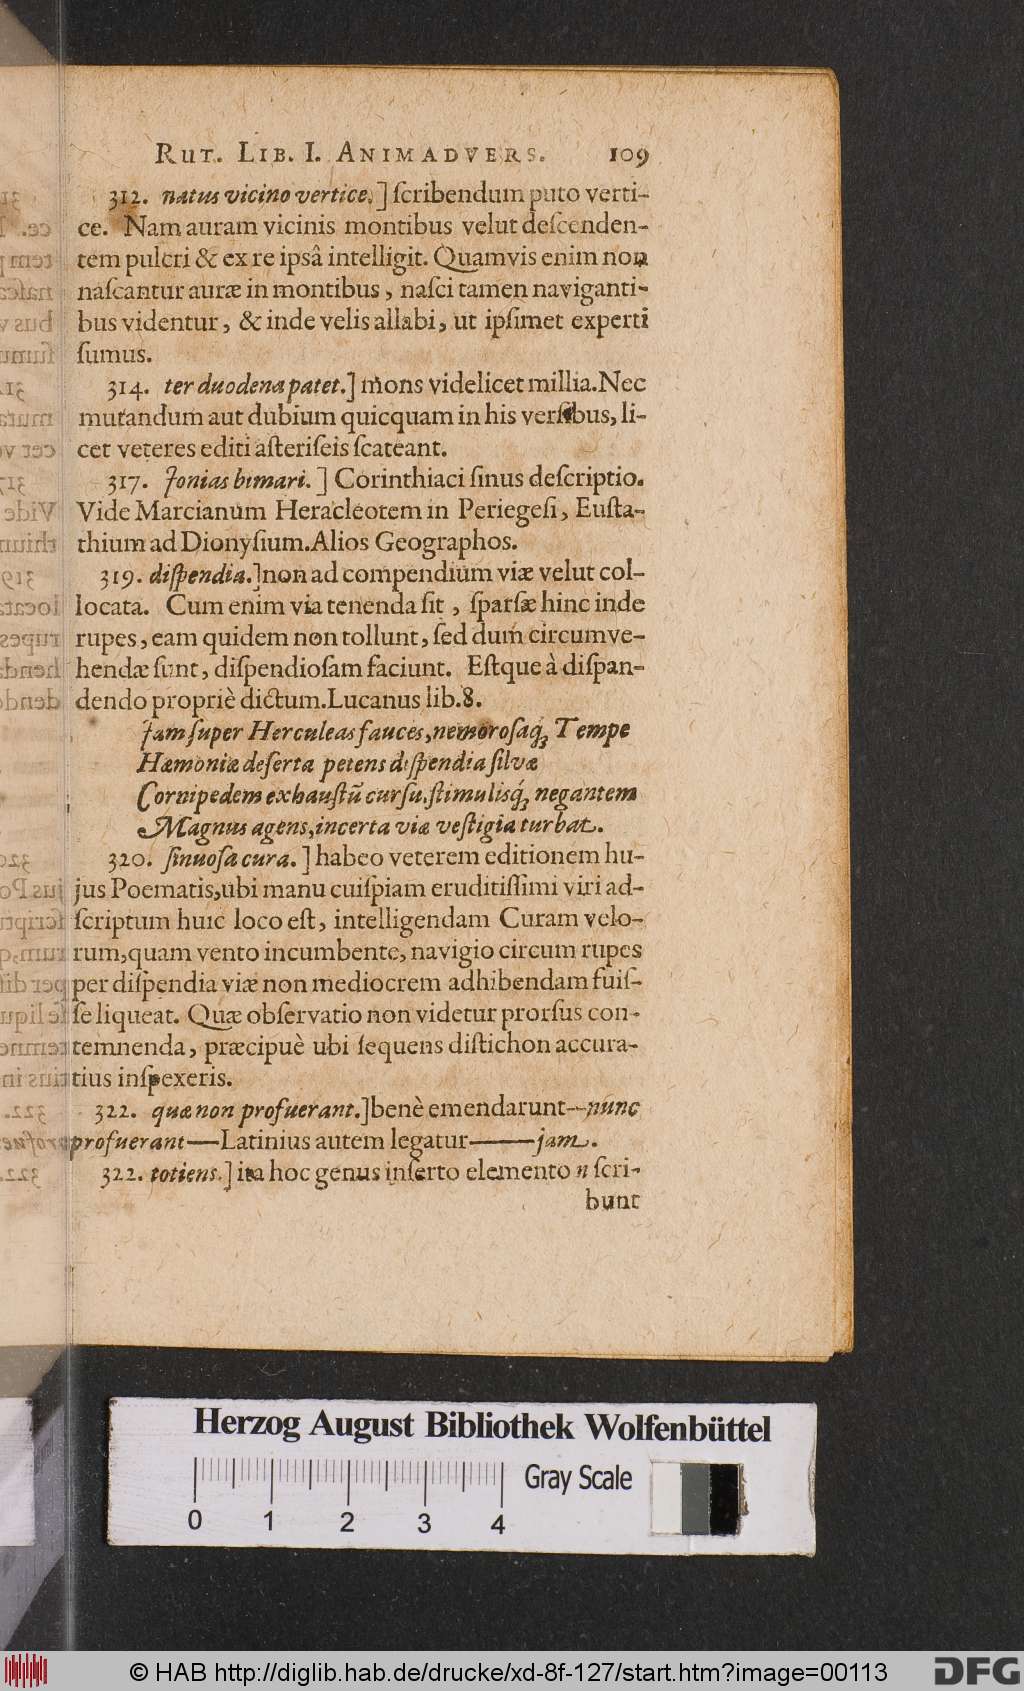 RUT. LIB. I. ANIMADVERS. 109
312. natus vicino vertice.] ſcribendum puto verti-
ce. Nam auram vicinis montibus velut deſcenden-
tem pulcri & ex re ipsâ intelligit. Quamvis enim non
naſcantur auræ in montibus, naſci tamen naviganti-
bus videntur, & inde velis allabi, ut ipſimet experti
ſumus.
314. ter duodena patet.] mons videlicet millia. Nec
mutandum aut dubium quicquam in his verſibus, li-
cet veteres editi aſteriſeis ſcateant.
317. Jonias bimari.] Corinthiaci ſinus deſcriptio.
Vide Marcianum Heracleotem in Periegeſi, Euſta-
thium ad Dionyſium. Alios Geographos.
319. diſpendia.] non ad compendium viæ velut col-
locata. Cum enim via tenenda ſit, ſparſæ hinc inde
rupes, eam quidem non tollunt, ſed dum circumve-
hendæ ſunt, diſpendioſam faciunt. Eſtque à diſpan-
dendo propriè dictum. Lucanus lib. 8.
Jam ſuper Herculeas fauces, nemoroſaq; Tempe
Hæmoniæ deſerta petens diſpendia ſilvæ
Cornipedem exhauſtū curſu, ſtimulisq́; negantem
Magnus agens, incerta viæ veſtigia turbat.
320. ſinuoſa cura.] habeo veterem editionem hu-
jus Poematis, ubi manu cuiſpiam eruditiſſimi viri ad-
ſcriptum huic loco eſt, intelligendam Curam velo-
rum, quam vento incumbente, navigio circum rupes
per diſpendia viæ non mediocrem adhibendam fuiſ-
ſe liqueat. Quæ obſervatio non videtur prorſus con-
temnenda, præcipuè ubi ſequens diſtichon accura-
tius inſpexeris.
322. quæ non profuerant.] benè emendarunt--nunc
profuerant—Latinius autem legatur——jam.
322. totiens.] ita hoc genus inſerto elemento n ſcri-
bunt
Herzog August Bibliothek Wolfenbüttel
Gray Scale
0 1 2 3 4
© HAB http://diglib.hab.de/drucke/xd-8f-127/start.htm?image=00113
DFG